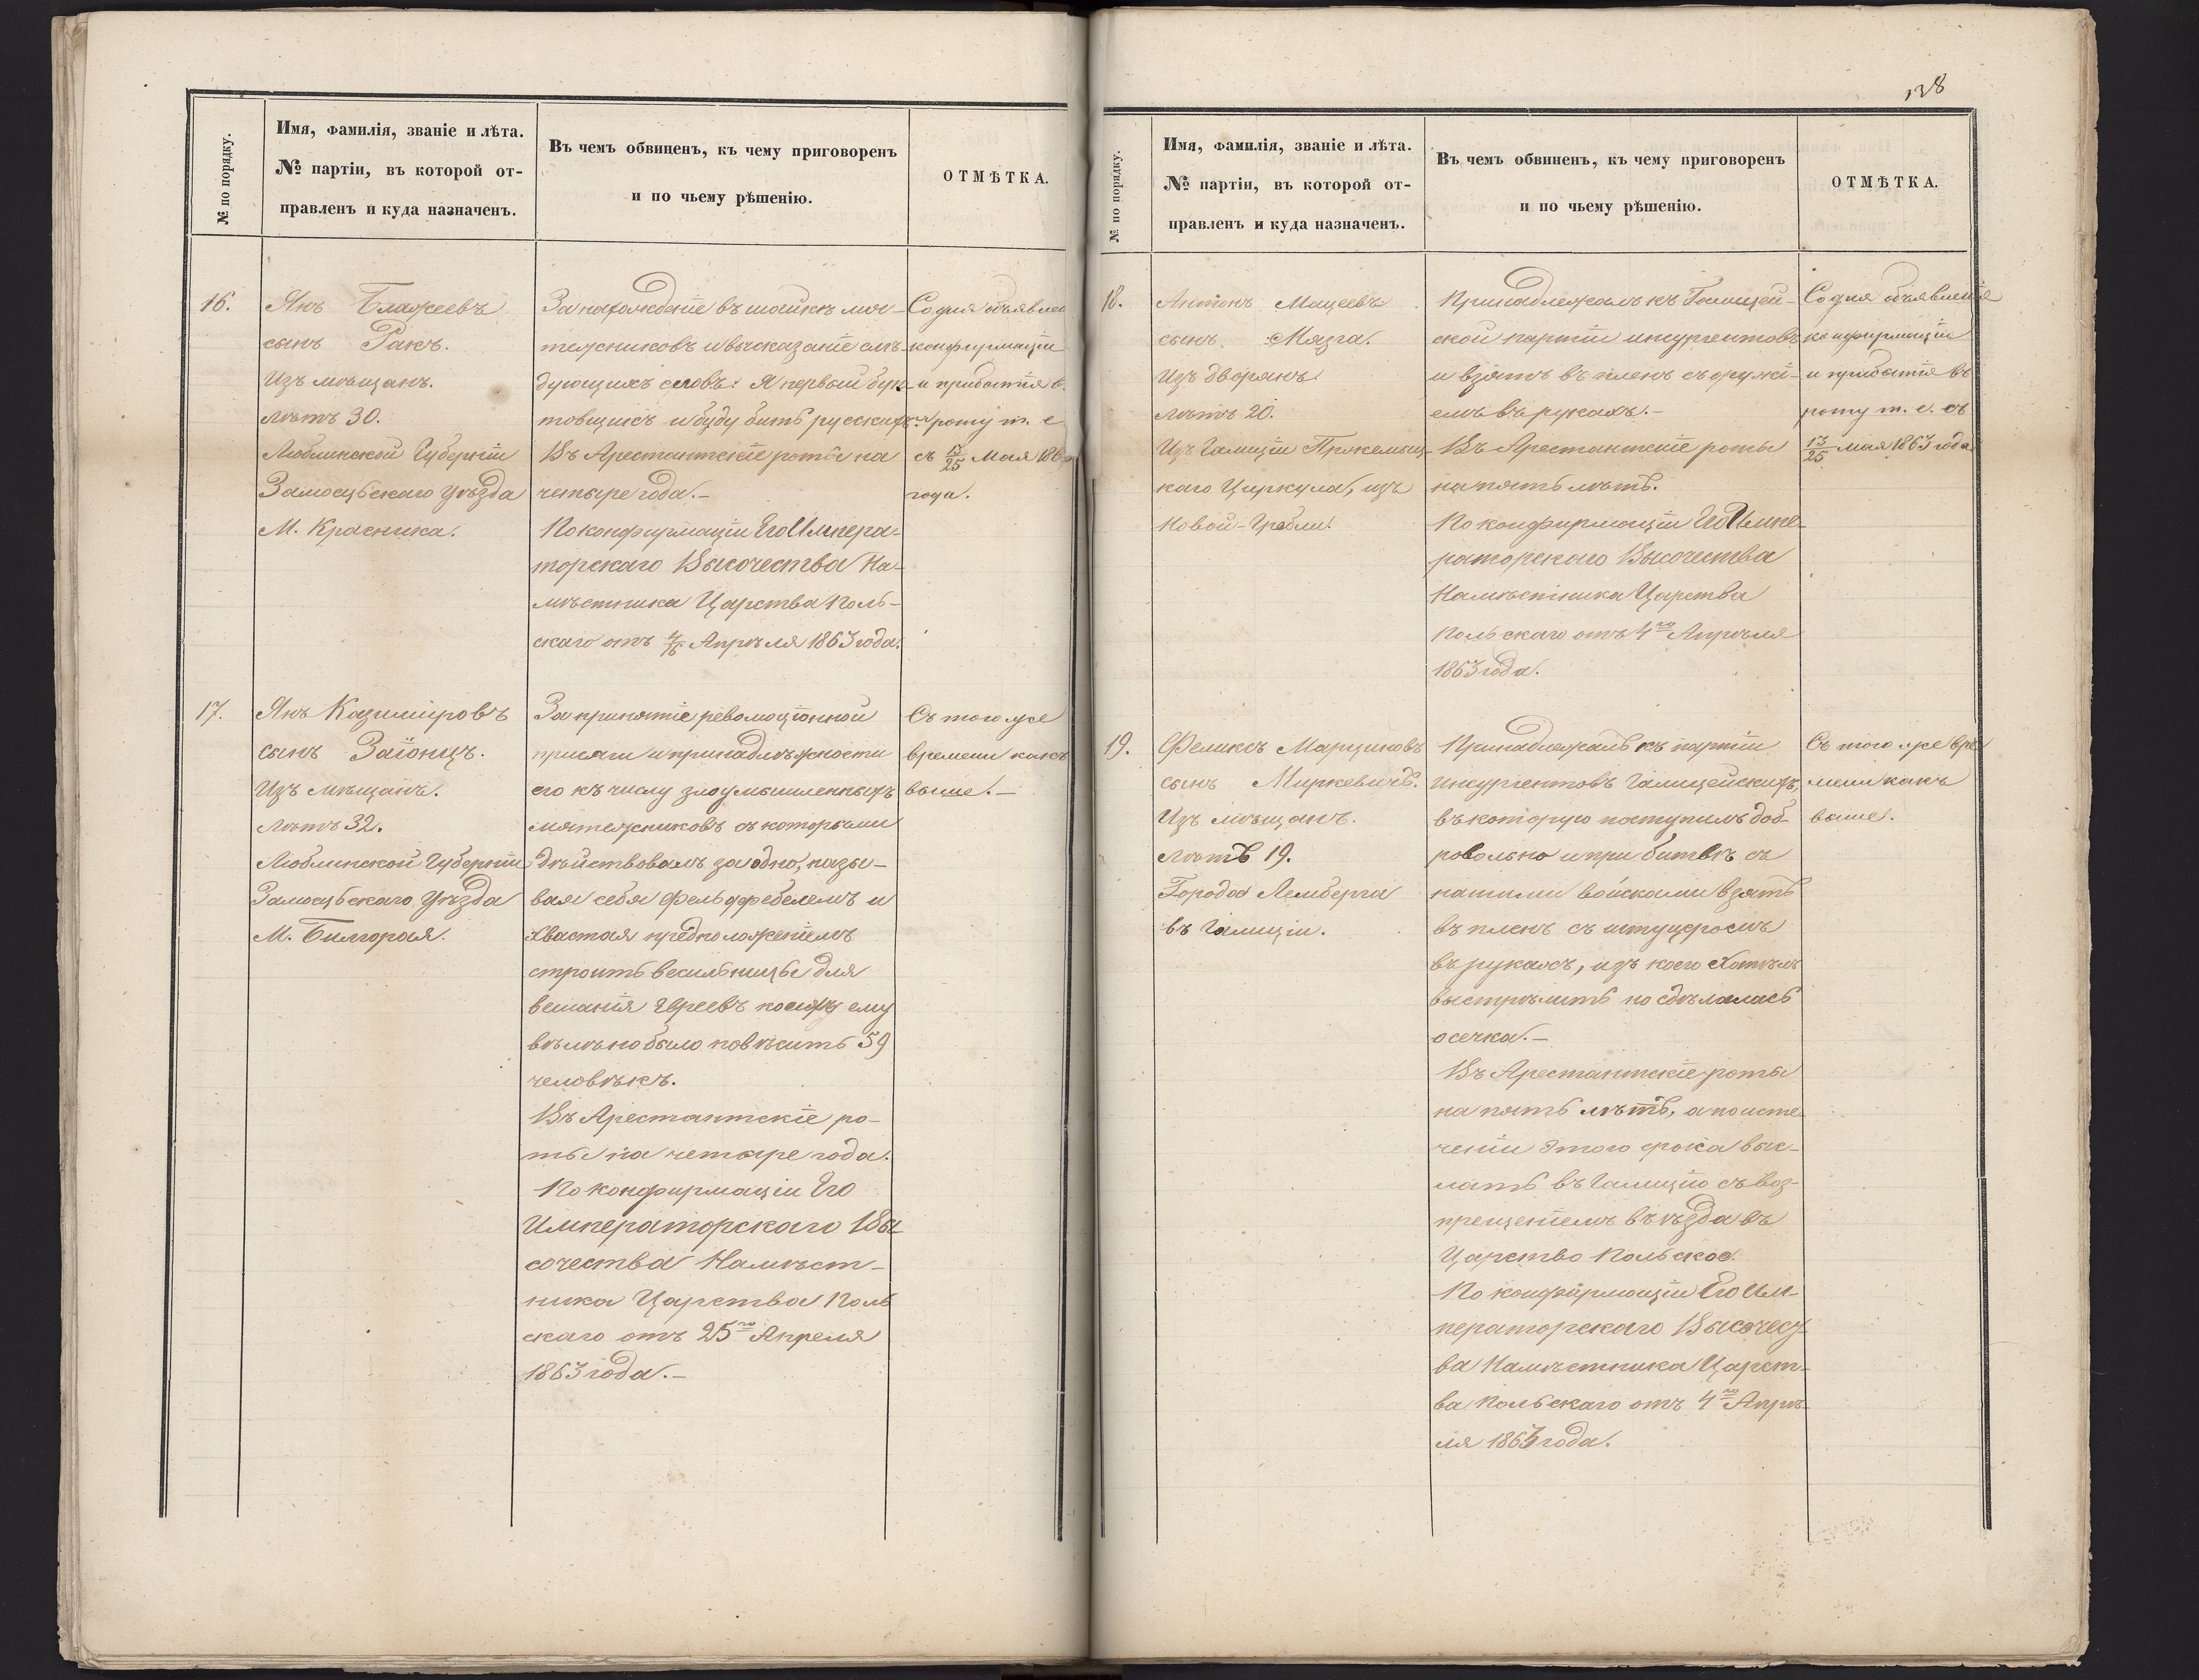 № по порядку.
Имя, фамилія, званіе и лѣта.
№ партіи, въ которой от-
правленъ и куда назначенъ.
Въ чемъ обвиненъ, къ чему приговоренъ
и по чьему рѣшенію.
ОТМѢТКА.
16.
Янъ Блажеевъ
сынъ Ракъ.
Изъ мѣщанъ.
Лѣтъ 30.
Люблинской Губерніи
Замосцьскаго Уѣзда
М. Красника.
За нахожденіе въ шайкѣ мя-
тежниковъ и высказаніе слѣ-
дующихъ словъ: Я первый бун-
товщикъ и буду бить русскихъ.
Въ Арестантскіе роты на
четыре года.-
По конфирмаціи Его Импера-
торскаго Высочества На-
мѣстника Царства Поль-
скаго отъ 4/16 Апрѣля 1863 года.
Со дня объявлен
конфирмаціи
и прибытія в
роту т. е
съ 13/25 Мая 186
года.
17.
Янъ Казиміровъ
сынъ Заіонцъ.
Изъ мѣщанъ.
Лѣтъ 32.
Люблинской Губерніи
Замосцьскаго Уѣзда
М. Билгорая.
За принятіе революціонной
присяги и принадлѣжности
его къ числу злоумышленныхъ
мятежниковъ съ которыми
дѣйствовалъ за одно, назы-
вая себя Фельдфебелемъ и
хвастая предположеніемъ
строить весильницы для
вешанія Евреевъ коихъ ему
вѣлѣно было повѣсить 59
человѣкъ.
Въ Арестантскіе ро-
ты на четыре года.
По конфирмаціи Его
Императорскаго Вы
сочества Намѣст-
ника Царства Поль
скаго отъ 25го Апреля
1863 года.-
Съ того же
времени какъ
выше.-
138
№ по порядку.
Имя, фамилія, званіе и лѣта.
№ партіи, въ которой от-
правленъ и куда назначенъ.
Въ чемъ обвиненъ, къ чему приговоренъ
и по чьему рѣшенію.
ОТМѢТКА.
18.
Антонъ Мацеевъ
сынъ Мязга.
Изъ дворянъ.
Лѣтъ 20.
Изъ Галиціи Пржемыш-
каго Циркула, изъ
Новой-Гребли.
Принадлежалъ къ Галицей-
ской партіи инсургентовъ
и взятъ въ пленъ съ оружі-
емъ въ рукахъ.-
Въ Арестантскіе роты
на пять лѣтъ.
По конфирмаціи Его Импе-
раторскаго Высочества
Намѣстника Царства
Польскаго отъ 4го Апрѣля
1863 года.
Со дня объявленія
конфирмаціи
и прибытія въ
роту т. е. съ
13/25 Мая 1863 года
19.
Феликсъ Марциновъ
сынъ Миркевичъ.
Изъ мѣщанъ.
Лѣтъ 19.
Города Лемберга
въ Галиціи.
Принадлежалъ къ партіи
инсургентовъ Галицейскихъ,
въ которую поступилъ доб-
ровольно и при битвѣ съ
нашими войсками взятъ
въ пленъ съ штуцеромъ
въ рукахъ, изъ коего хотѣлъ
выстрѣлить но сдѣлалась
осечка.-
Въ Арестантскіе роты
на пять лѣтъ, а по исте-
ченіи этого срока выс-
лать въ Галицію съ воз-
прещеніемъ въѣзда въ
Царство Польское.
По конфирмаціи Его Им-
ператорскаго Высочест-
ва Намѣстника Царст-
ва Польскаго отъ 4го Апрѣ-
ля 1863 года.
Съ того же вре
мени какъ
выше.